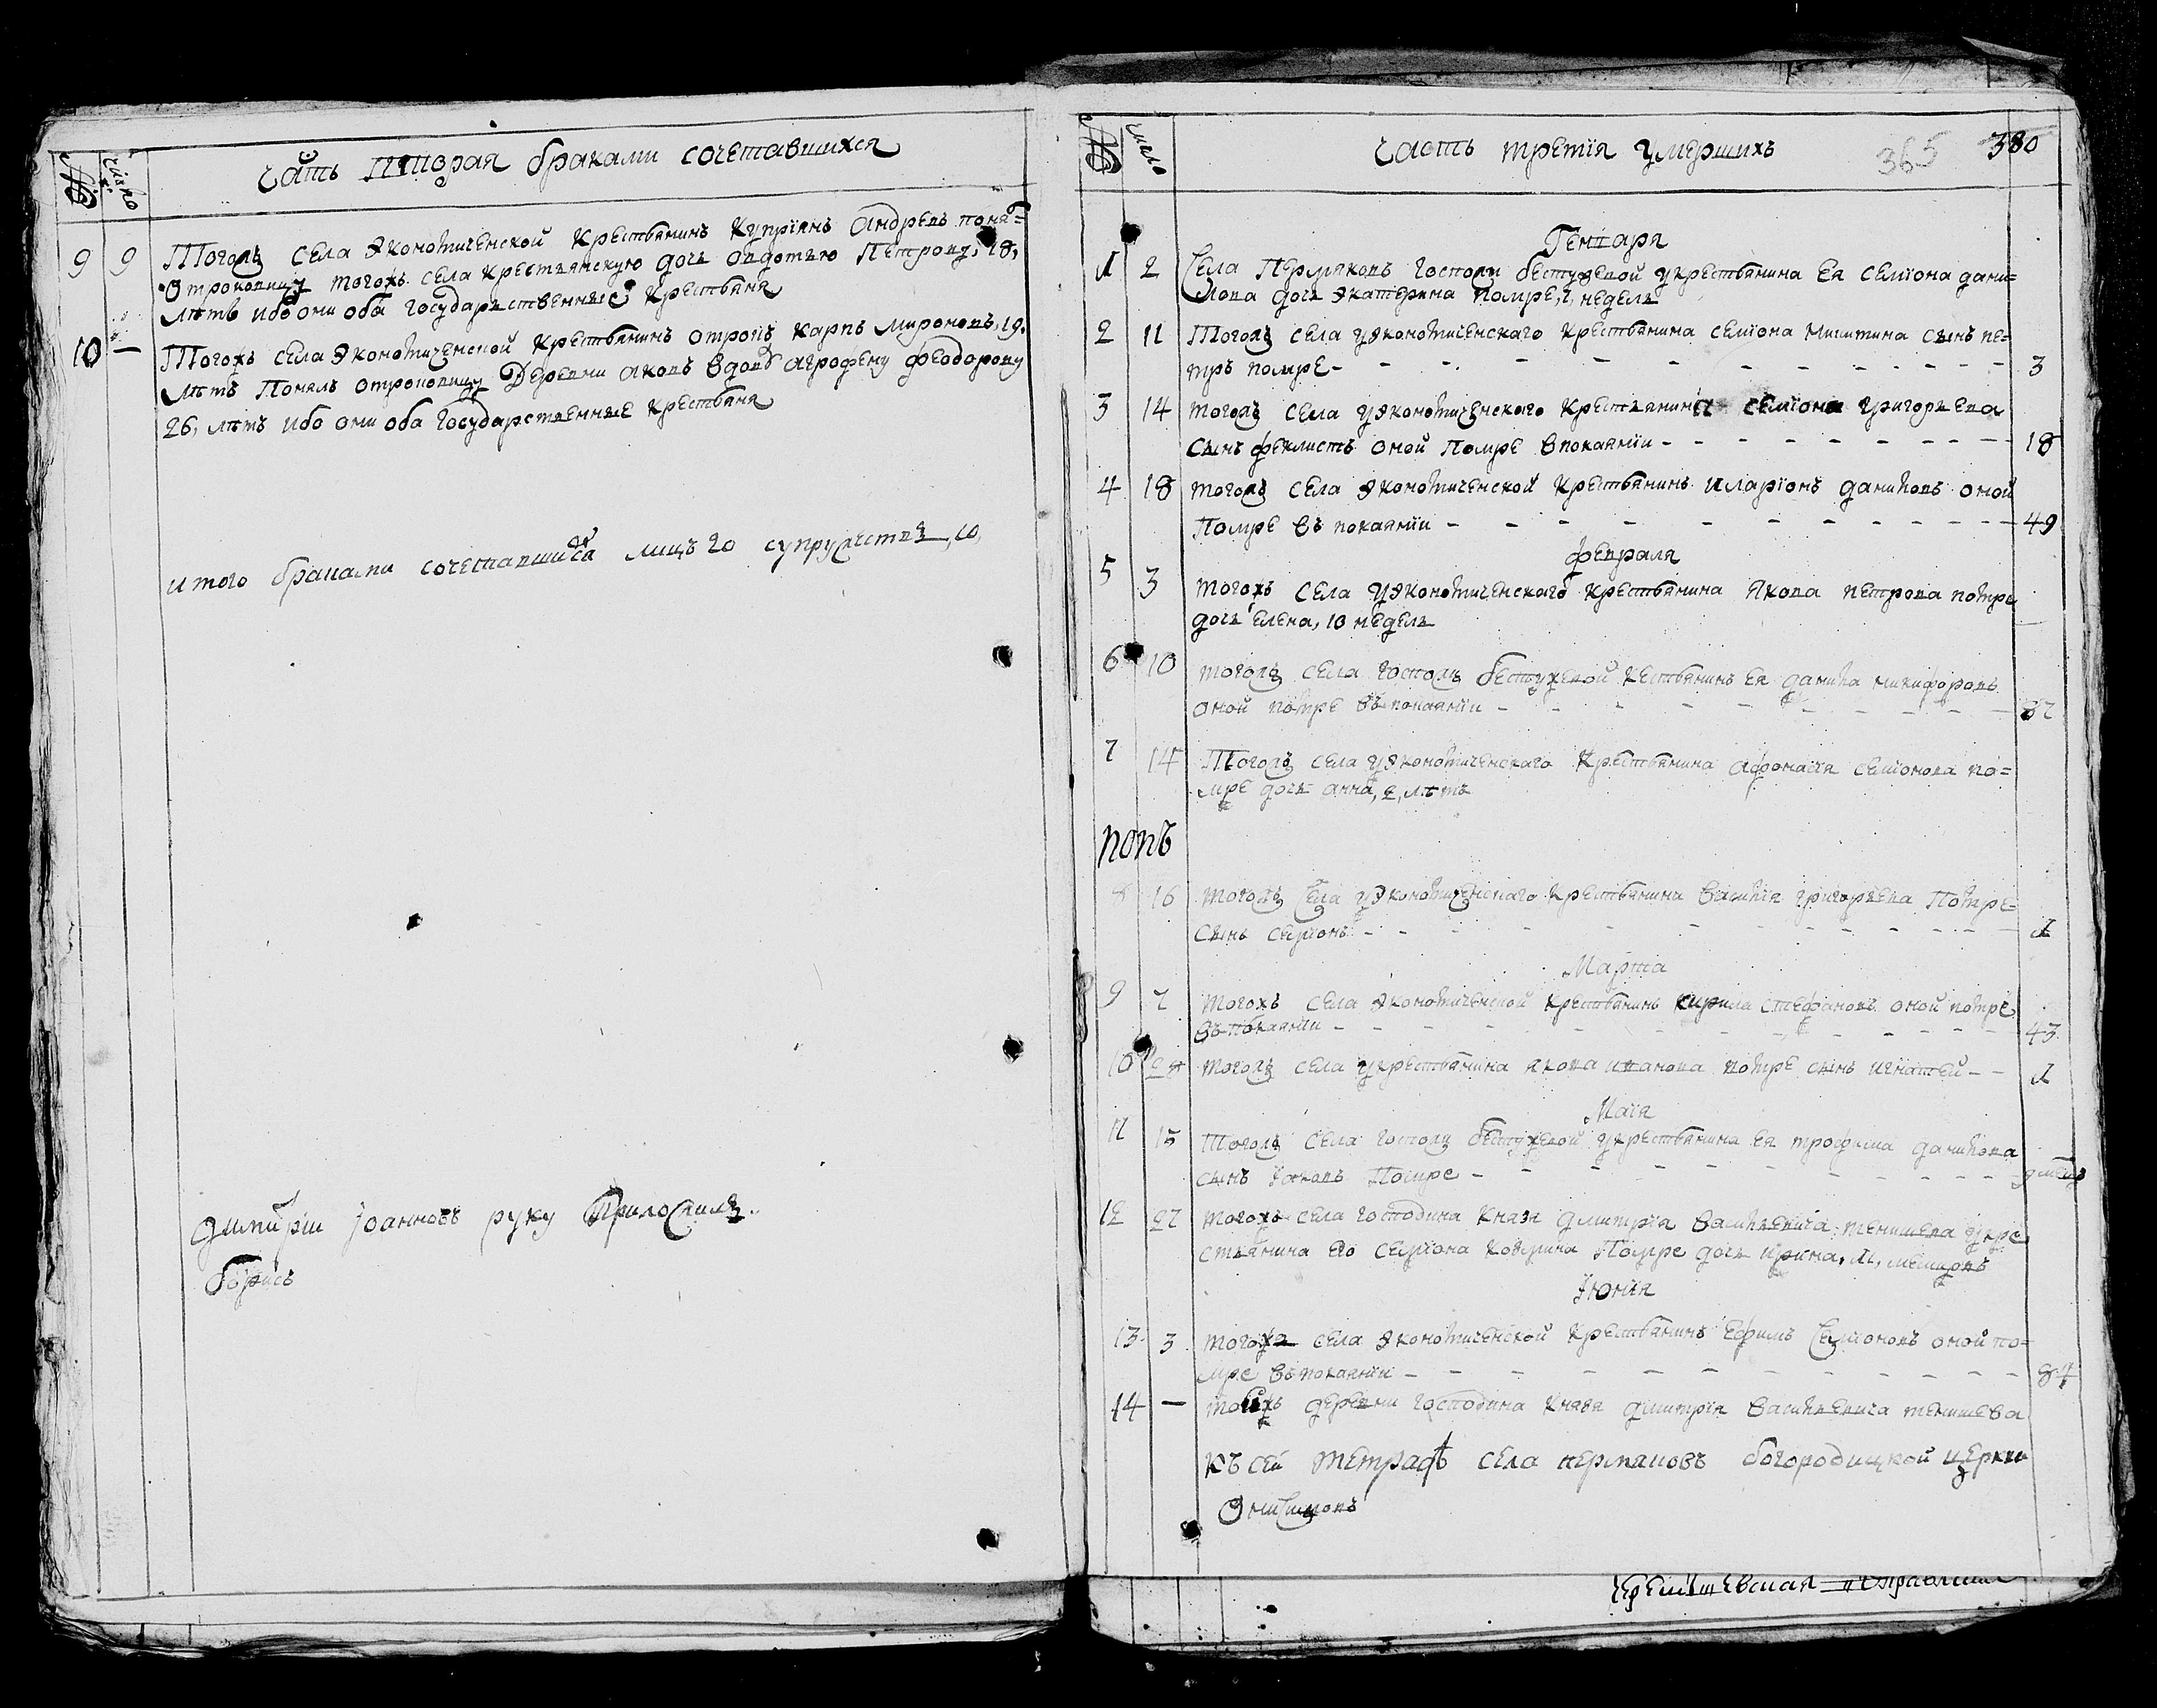 № число часть вторая браками сочетавшихся
9 9 Тогожъ села экономической крестьянинъ Купріянъ Андреевъ поня=
отроковицу тогожъ села крестьянскую дочь овдотью Петрову, 18,
лѣтъ ибо они оба государственные крестьяня
10 — Тогожъ села экономической крестьянинъ отрокъ карпъ мироновъ, 19,
лѣтъ понялъ отроковицу деревни вдову агрофену феодорову
26, лѣтъ ибо они оба государственные крестьяня
итого браками сочетавшихся лицъ 20 супружествъ, 10,
Димитріи Іоанновъ руку приложилъ
борисъ
№ число часть третія умершихъ 365 380
Генваря
1 2 Села Пермяковъ господи бестужевой у крестьянина ея семіона дани=
лова дочь экатерина помре, 7, недель
2 11 Тогожъ села у экономического крестьянина семіона микитина сынъ пе=
тръ помре 3
3 14 тогожъ села у экономического крестьянина семіона григорьева
сынъ феклистъ оной помре в покаяніи 18
4 18 тогожъ села экономической крестьянинъ иларіонъ даниловъ оной
помре въ покаяніи 49
февраля
5 3 тогожъ села у экономического крестьянина якова петрова помре
дочь елена, 10 недель
6 10 тогожъ села господи бестужевой кестьянинъ ея данила никифоровъ
оной помре въ покаяніи 37
7 14 Тогожъ села у экономического крестьянина афонасія семионова по=
мре дочь анна, 2, лѣтъ
попъ
8 16 тогожъ села у экономического крестьянина василія григорьева помре
сынъ семіонъ 1
Марта
9 7 тогожъ села экономической крестьянинъ кирила стефановъ оной помре
въ покаяніи 43
10 28 тогожъ села у крестьянина якова иванова помре сынъ игнатей 1
Маія
11 15 Тогожъ села господи бестужевой у крестьянина ея трофима данилова
сынъ Іаковъ помре
12 27 тогожъ села господина князя дмитрія васильевича тенишева у кре
стьянина его семіона помре дочь ирина, 11, месяцовъ
Іюнія
13 3 тогожъ села экономической крестьянинъ ефимъ семіоновъ оной по=
мре въ покаяніи 87
14 — тоежъ деревни господина князя дмитрія васильевича тенишева
къ сей тетрадѣ села пермяковъ богородицкой церкви
Онисимовъ